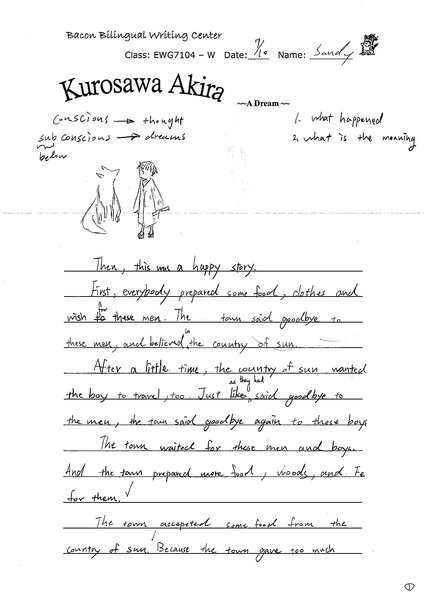 Bacon Bilingual Writing Center
Class: EWG7104 – W Date: 7/10 Name: Sandy
Kurosawa Akira
~~A Dream~~
conscious → thought
subconscious → dreams
below
1. what happened
2. what is the meaning
Then, this was a happy story.
First, everybody prepared some food, clothes and
wish for these men. The town said goodbye to
these men, and believed in the country of sun.
After a little time, the country of sun wanted
the boy to travel, too. Just like as they had said goodbye to
the men, the town said goodbye again to these boys
The town waited for these men and boys.
And the town prepared more food, woods, and
for them.
The town accepeted some food from the
country of sun. Because the town gave too much
1